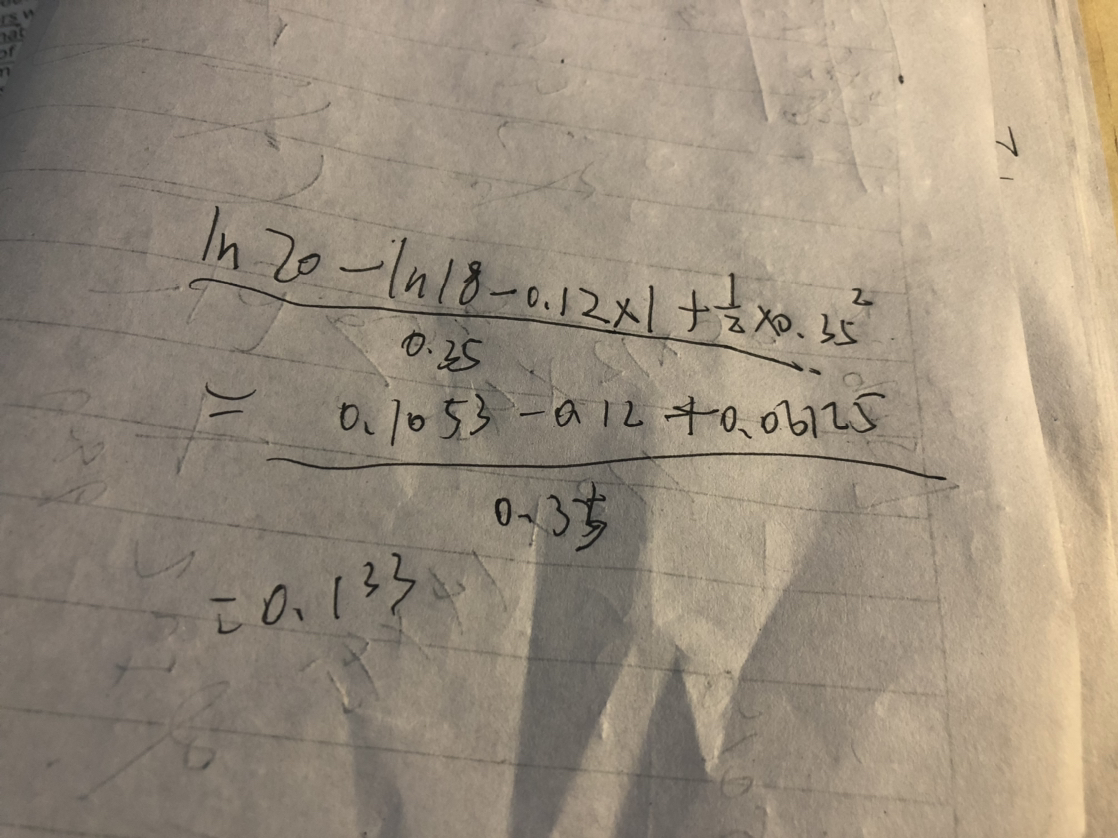 ln 20 − ln 18 − 0.12×1 + ½ ×0.35²
0.35
= 0.1053 − 0.12 + 0.06125
0.35
= 0.133